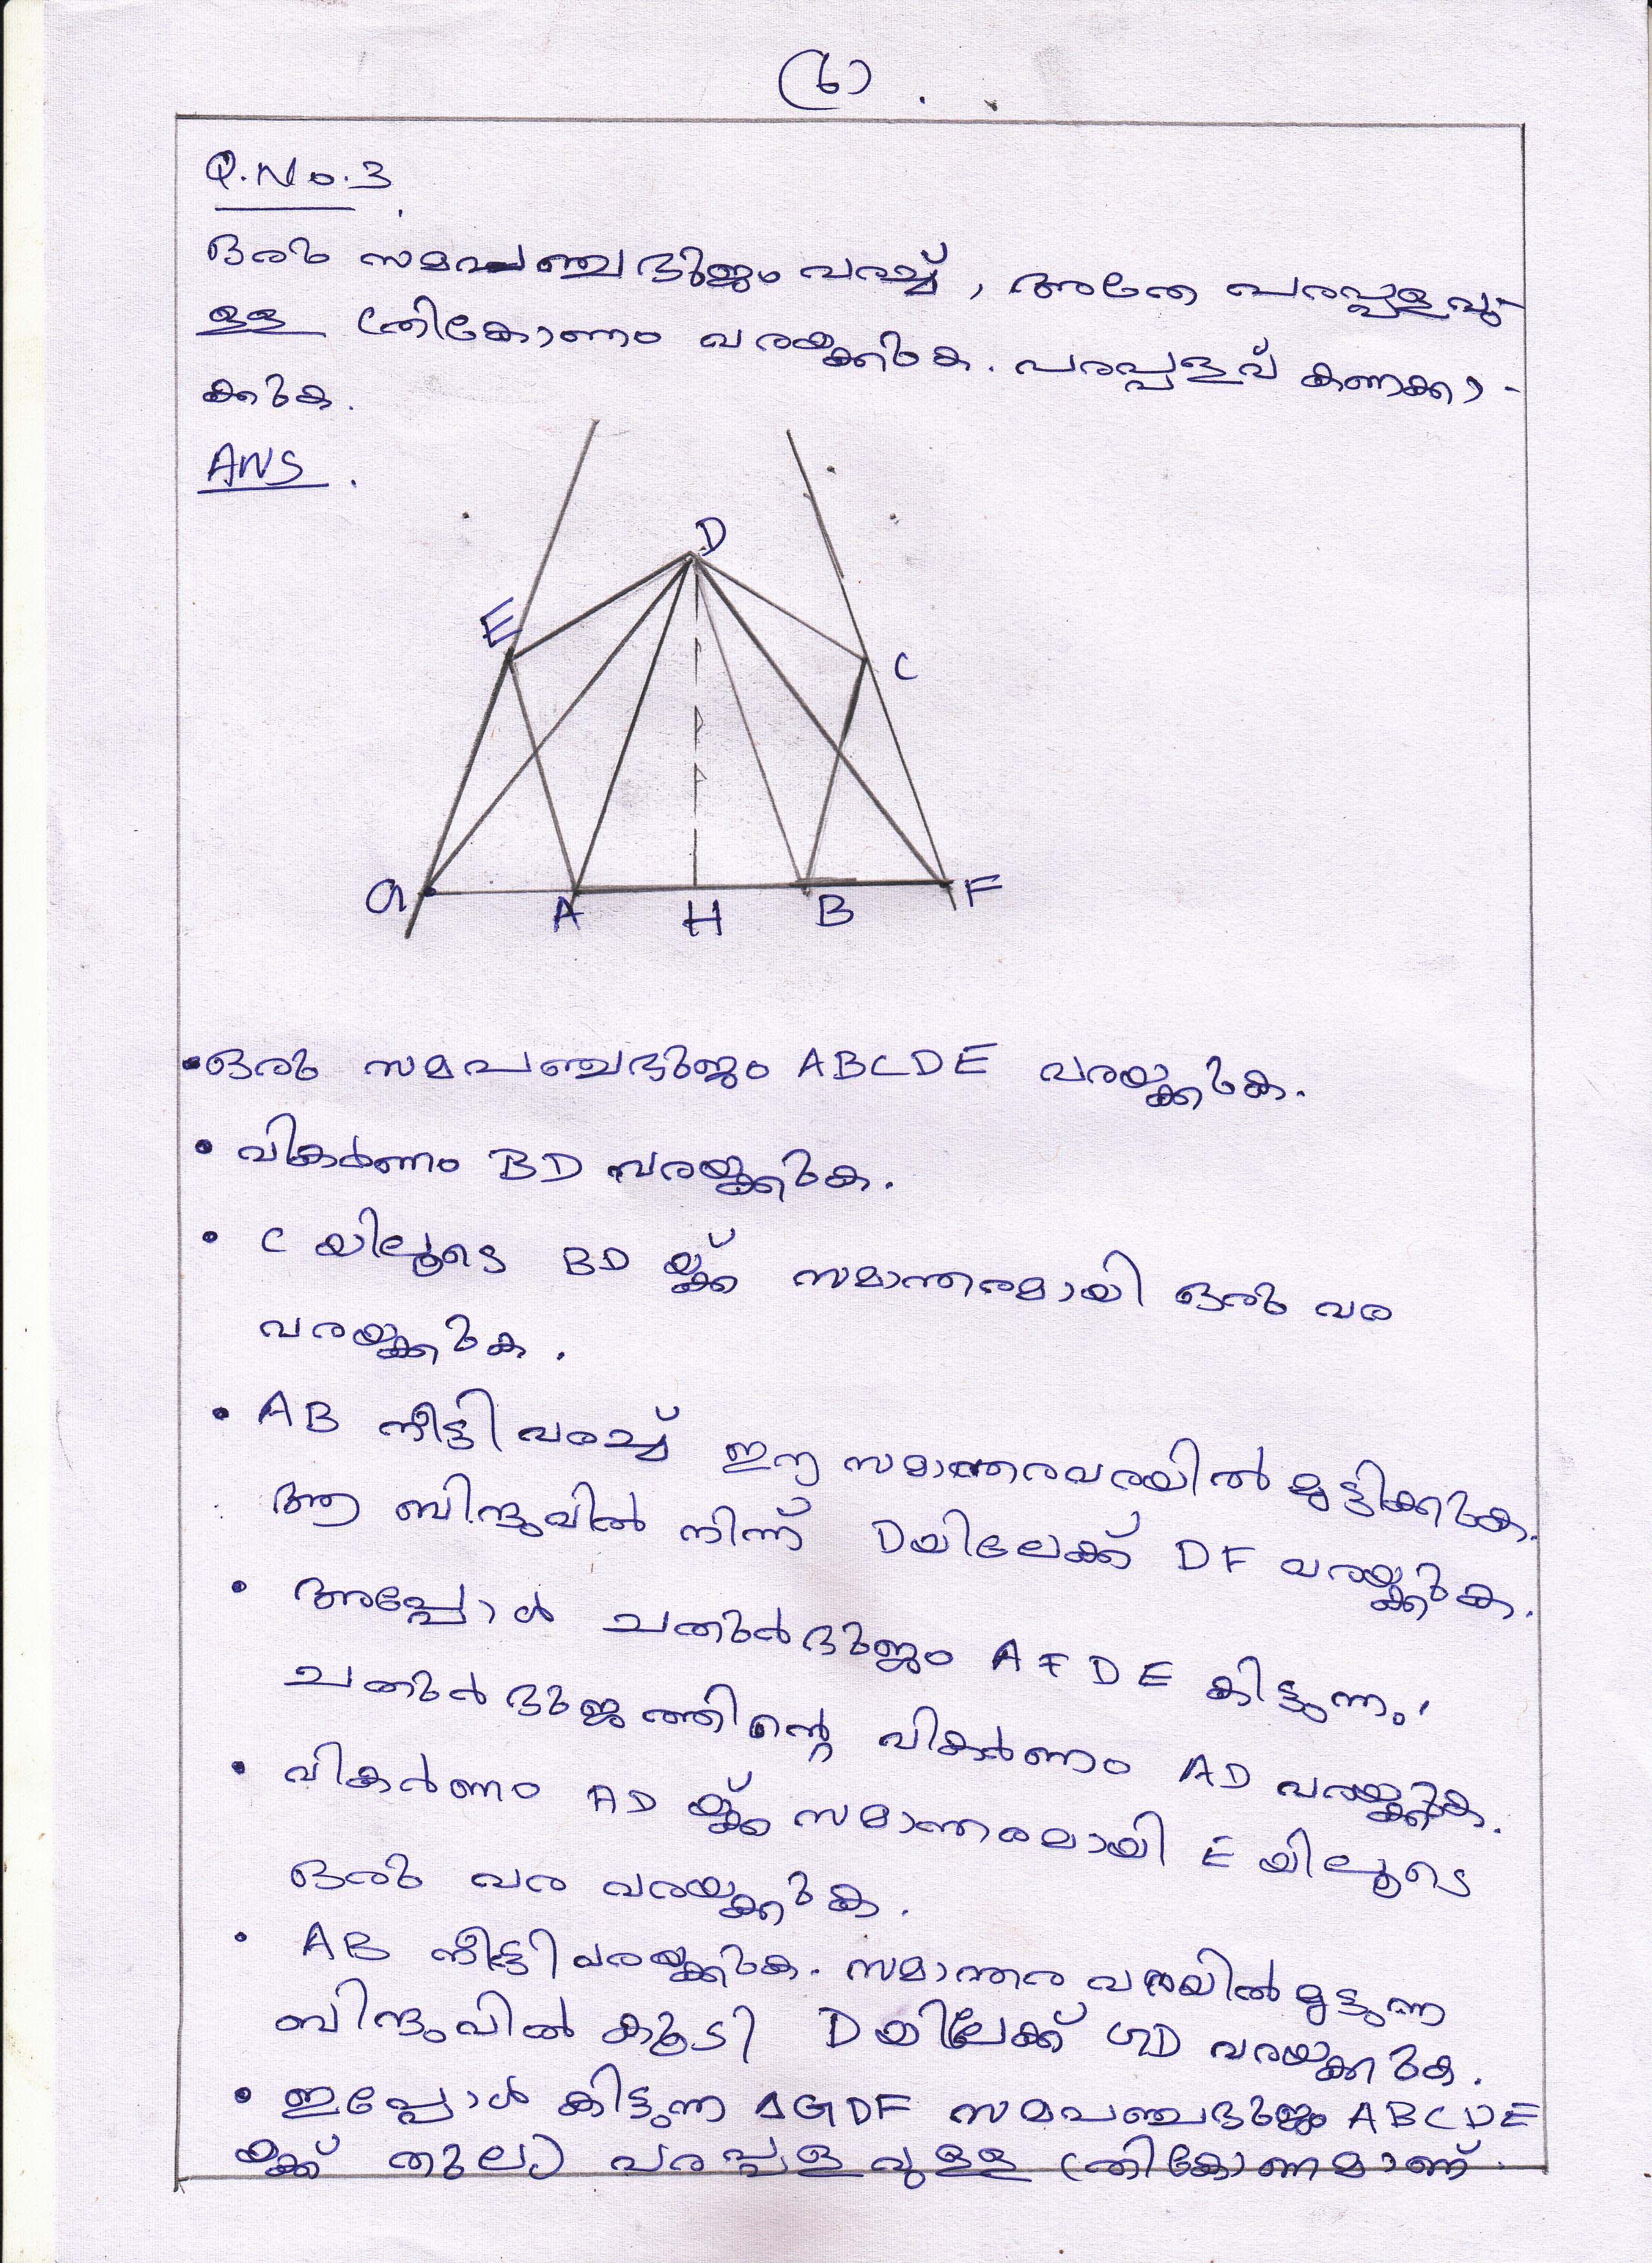 (6)
Q.No.3
ഒരു സമപഞ്ചഭുജം വരച്ച്, അതേ പരപ്പളവു-
ള്ള ത്രികോണം വരയ്ക്കുക. പരപ്പളവ് കണക്കാ-
ക്കുക.
ANS.
D
E
C
G
A
H
B
F
• ഒരു സമപഞ്ചഭുജം ABCDE വരയ്ക്കുക.
• വികർണം BD വരയ്ക്കുക.
• C യിലൂടെ BD യ്ക്ക് സമാന്തരമായി ഒരു വര
വരയ്ക്കുക.
• AB നീട്ടി വരച്ച് ഈ സമാന്തരവരയിൽ മുട്ടിക്കുക.
ആ ബിന്ദുവിൽ നിന്ന് Dയിലേക്ക് DF വരയ്ക്കുക.
• അപ്പോൾ ചതുർഭുജം AFDE കിട്ടുന്നു.
ചതുർഭുജത്തിന്റെ വികർണം AD വരയ്ക്കുക.
• വികർണം AD യ്ക്ക് സമാന്തരമായി E യിലൂടെ
ഒരു വര വരയ്ക്കുക.
• AB നീട്ടി വരയ്ക്കുക. സമാന്തര വരയിൽ മുട്ടുന്ന
ബിന്ദുവിൽ കൂടി D യിലേക്ക് GD വരയ്ക്കുക.
• ഇപ്പോൾ കിട്ടുന്ന ΔGDF സമപഞ്ചഭുജം ABCDE
യ്ക്ക് തുല്യ പരപ്പളവുള്ള ത്രികോണമാണ്.